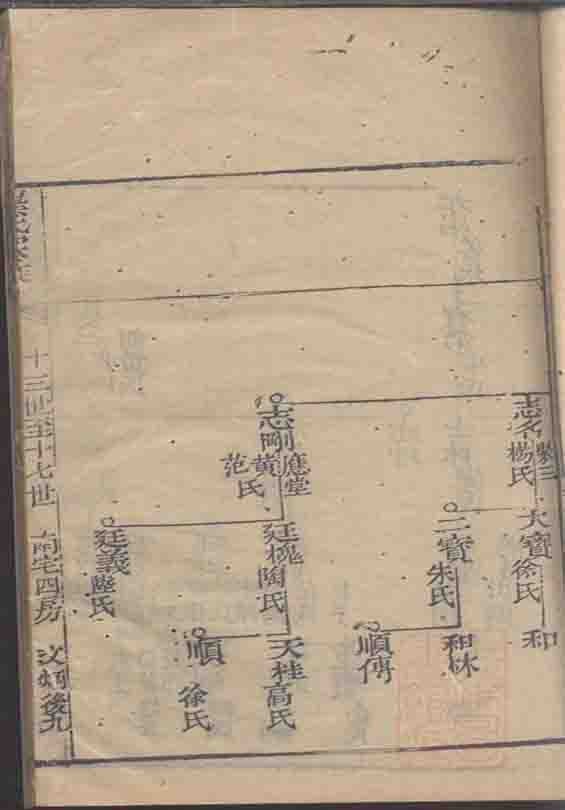 志名
楊氏
大寶
徐氏
和
二寶
朱氏
和林
順傳
志剛
應堂
黄
范氏
廷槐
陶氏
天桂
高氏
順
徐氏
廷義
氏
十三世至十七世
南宅四房